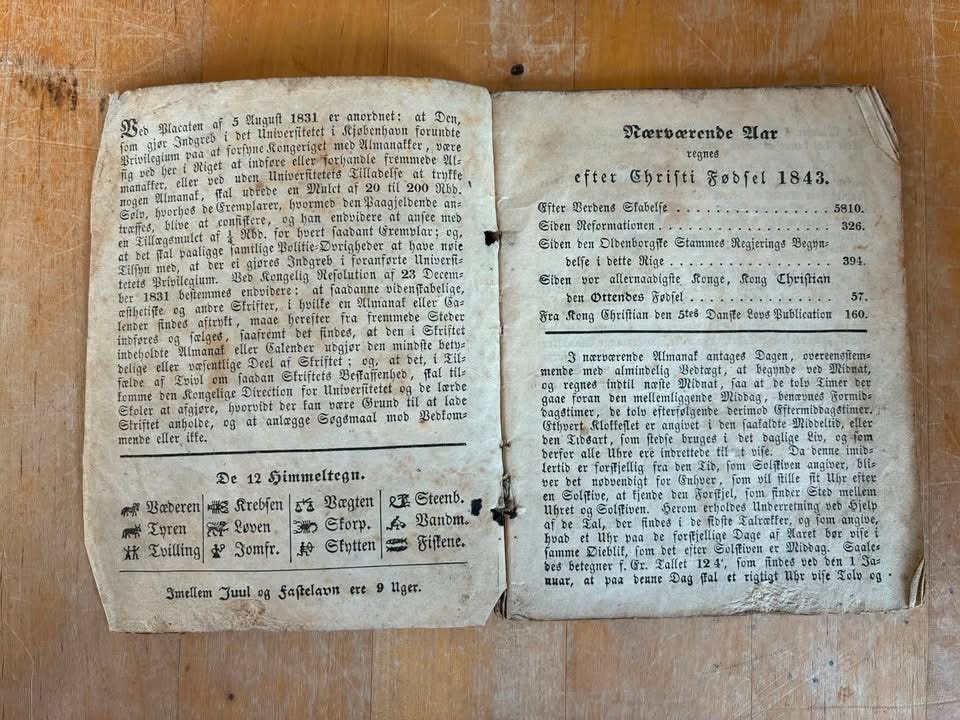 Ved Placaten af 5 August 1831 er anordnet: at Den,
som gjør Indgreb i det Universitetet i Kjøbenhavn forundte
Privilegium paa at forsyne Kongeriget med Almanakker, være
sig ved her i Riget at indføre eller forhandle fremmede Al-
manakker, eller ved uden Universitetets Tilladelse at trykke
nogen Almanak, skal udrede en Mulct af 20 til 200 Rbd.
Sølv, hvorhos de Exemplarer, hvormed den Paagjeldende an-
træffes, blive at confiskere, og han endvidere at ansee med
en Tillægsmulct af ¼ Rbd. for hvert saadant Exemplar; og,
at det skal paaligge samtlige Politie-Øvrigheder at have nøie
Tilsyn med, at der ei gjøres Indgreb i foranførte Universi-
tetets Privilegium. Ved Kongelig Resolution af 23 Decem-
ber 1831 bestemmes endvidere: at saadanne videnskabelige,
æsthetiske og andre Skrifter, i hvilke en Almanak eller Ca-
lender findes aftrykt, maae herefter fra fremmede Steder
indføres og sælges, saafremt det findes, at den i Skriftet
indeholdte Almanak eller Calender udgjør den mindste bety-
delige eller væsentlige Deel af Skriftet; og, at det, i Til-
fælde af Tvivl om saadan Skriftets Beskaffenhed, skal til-
komme den Kongelige Direction for Universitetet og de lærde
Skoler at afgjøre, hvorvidt der kan være Grund til at lade
Skriftet anholde, og at anlægge Søgsmaal mod Vedkom-
mende eller ikke.
De 12 Himmeltegn.
Væderen Krebsen Vægten Steenb.
Tyren Løven Skorp. Vandm.
Tvilling Jomfr. Skytten Fiskene.
Imellem Juul og Fastelavn ere 9 Uger.
Nærværende Aar
regnes
efter Christi Fødsel 1843.
Efter Verdens Skabelse . . . . . . . . . . . . . . . . 5810.
Siden Reformationen . . . . . . . . . . . . . . . . . 326.
Siden den Oldenborgske Stammes Regjerings Begyn-
delse i dette Rige . . . . . . . . . . . . . . . . 394.
Siden vor allernaadigste Konge, Kong Christian
den Ottendes Fødsel . . . . . . . . . . . . . . 57.
Fra Kong Christian den 5tes Danske Lovs Publication 160.
I nærværende Almanak antages Dagen, overeensstem-
mende med almindelig Vedtægt, at begynde ved Midnat,
og regnes indtil næste Midnat, saa at de tolv Timer der
gaae foran den mellemliggende Middag, benævnes Formid-
dagstimer, de tolv efterfølgende derimod Eftermiddagstimer.
Ethvert Klokkeslet er angivet i den saakaldte Middeltid, eller
den Tidsart, som stedse bruges i det daglige Liv, og som
derfor alle Uhre ere indrettede til at vise. Da denne imid-
lertid er forskjellig fra den Tid, som Solskiven angiver, bli-
ver det nødvendigt for Enhver, som vil stille sit Uhr efter
en Solskive, at kjende den Forskjel, som finder Sted mellem
Uhret og Solskiven. Herom erholdes Underretning ved Hjelp
af de Tal, der findes i de sidste Talrækker, og som angive,
hvad et Uhr paa de forskjellige Dage af Aaret bør vise i
samme Øieblik, som det efter Solskiven er Middag. Saale-
des betegner f. Ex. Tallet 12 4′, som findes ved den 1 Ja-
nuar, at paa denne Dag skal et rigtigt Uhr vise Tolv og